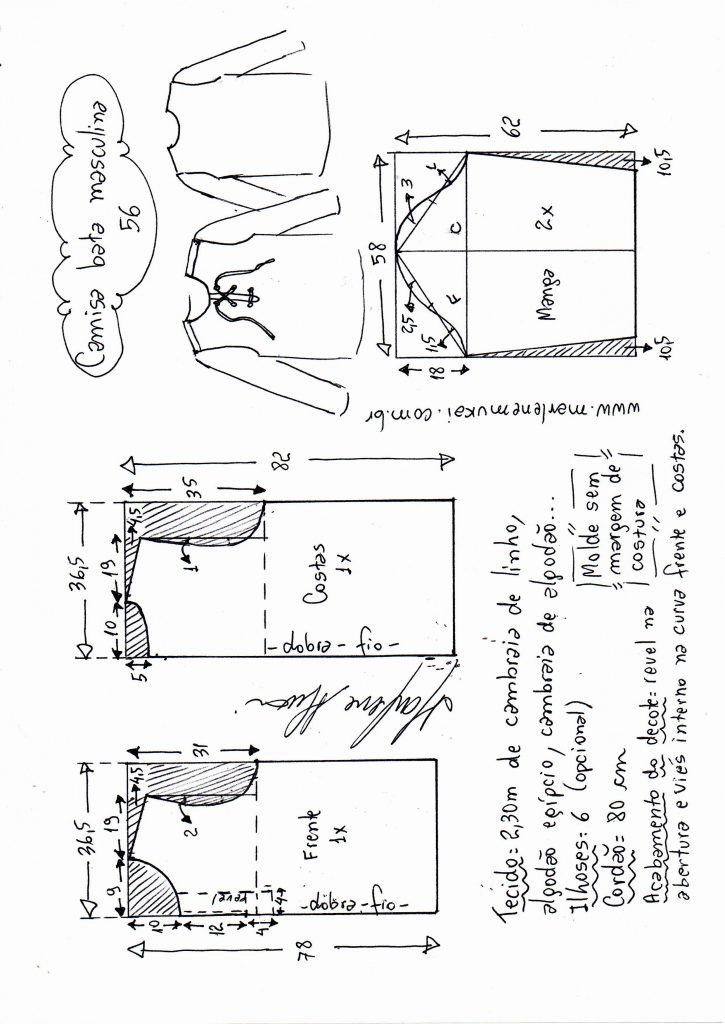 Camisa bata masculina
56
62
58
3
1
C
2x
10,5
2,5
F
1,5
Manga
18
10,5
www.marlenemukai.com.br
82
35
36,5
4,5
19
1
10
5
Costas
1x
-oif-erbop-
Marlene Mukai
31
36,5
4,5
19
2
9
Frente
1x
revel
4
-oif-erbop-
10
12
4
78
Tecido: 2,30m de cambraia de linho,
algodão egípcio, cambraia de algodão...
Ilhoses: 6 (opcional)
Cordão= 80 cm
Molde sem
margem de
costura
Acabamento do decote: revel na
abertura e viés interno na curva frente e costas.